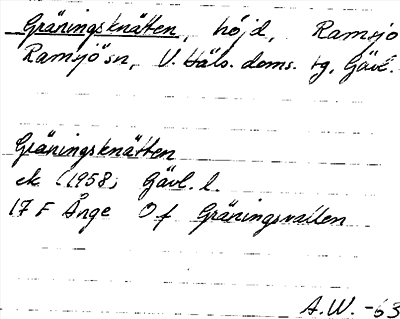 Gräningsknätten, höjd, Ramsjö
Ramsjö sn, V. Häls. doms. tg, Gävl.
Gräningsknätten
ek. (1958) Gävl. l.
17 F Ånge Of Gräningsvallen
A.W. -63